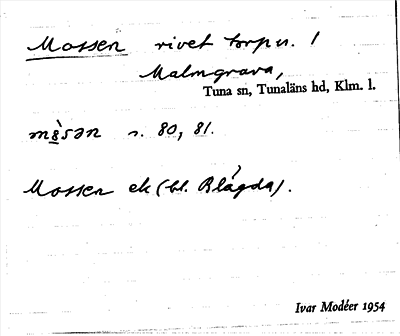 Mossen rivet torp u. /
Malmgrava,
Tuna sn, Tunaläns hd, Klm. l.
mòsən s. 80, 81.
Mossen ek (bl. Blågda).
Ivar Modéer 1954